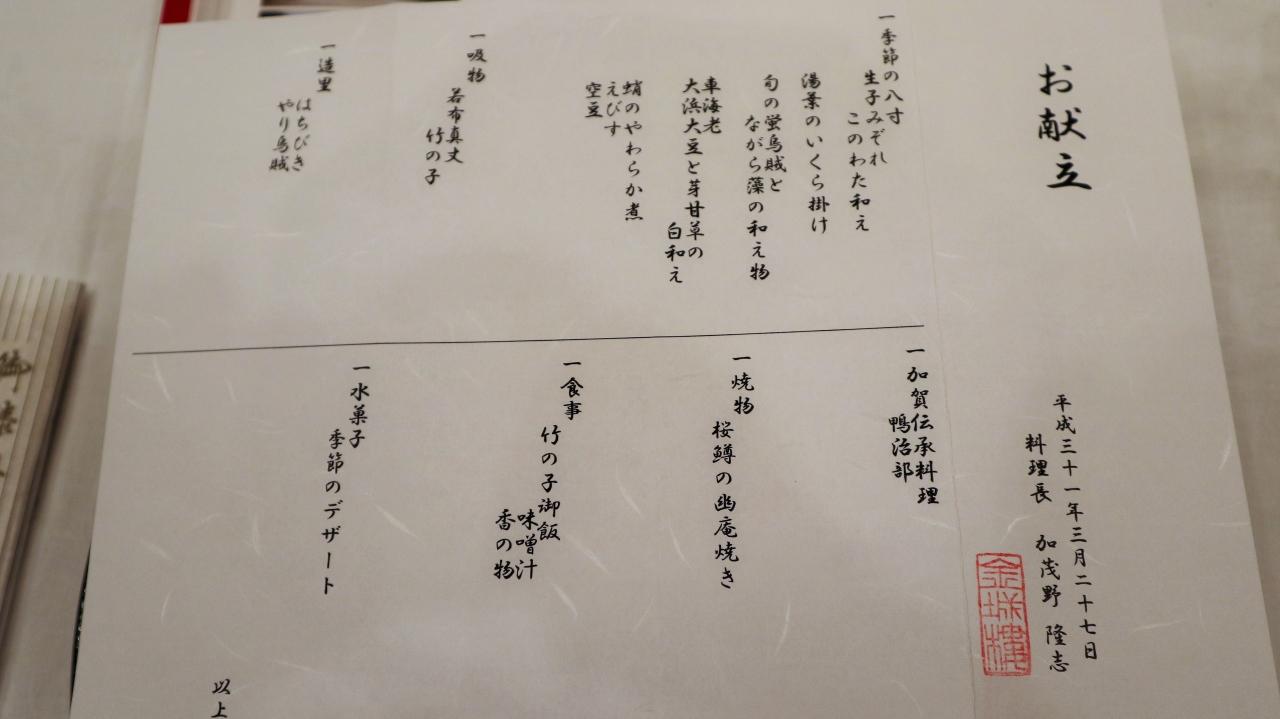 お献立
平成三十一年三月二十七日
料理長 加茂野 隆志
金城樓
一季節の八寸
生子みぞれ
このわた和え
湯葉のいくら掛け
旬の蛍烏賊と
ながら藻の和え物
車海老
大浜大豆と芽甘草の
白和え
蛸のやわらか煮
えびす
空豆
一吸物
若布真丈
竹の子
一造里
はちびき
やり烏賊
一加賀伝承料理
鴨治部
一焼物
桜鱒の幽庵焼き
一食事
竹の子御飯
味噌汁
香の物
一水菓子
季節のデザート
以上